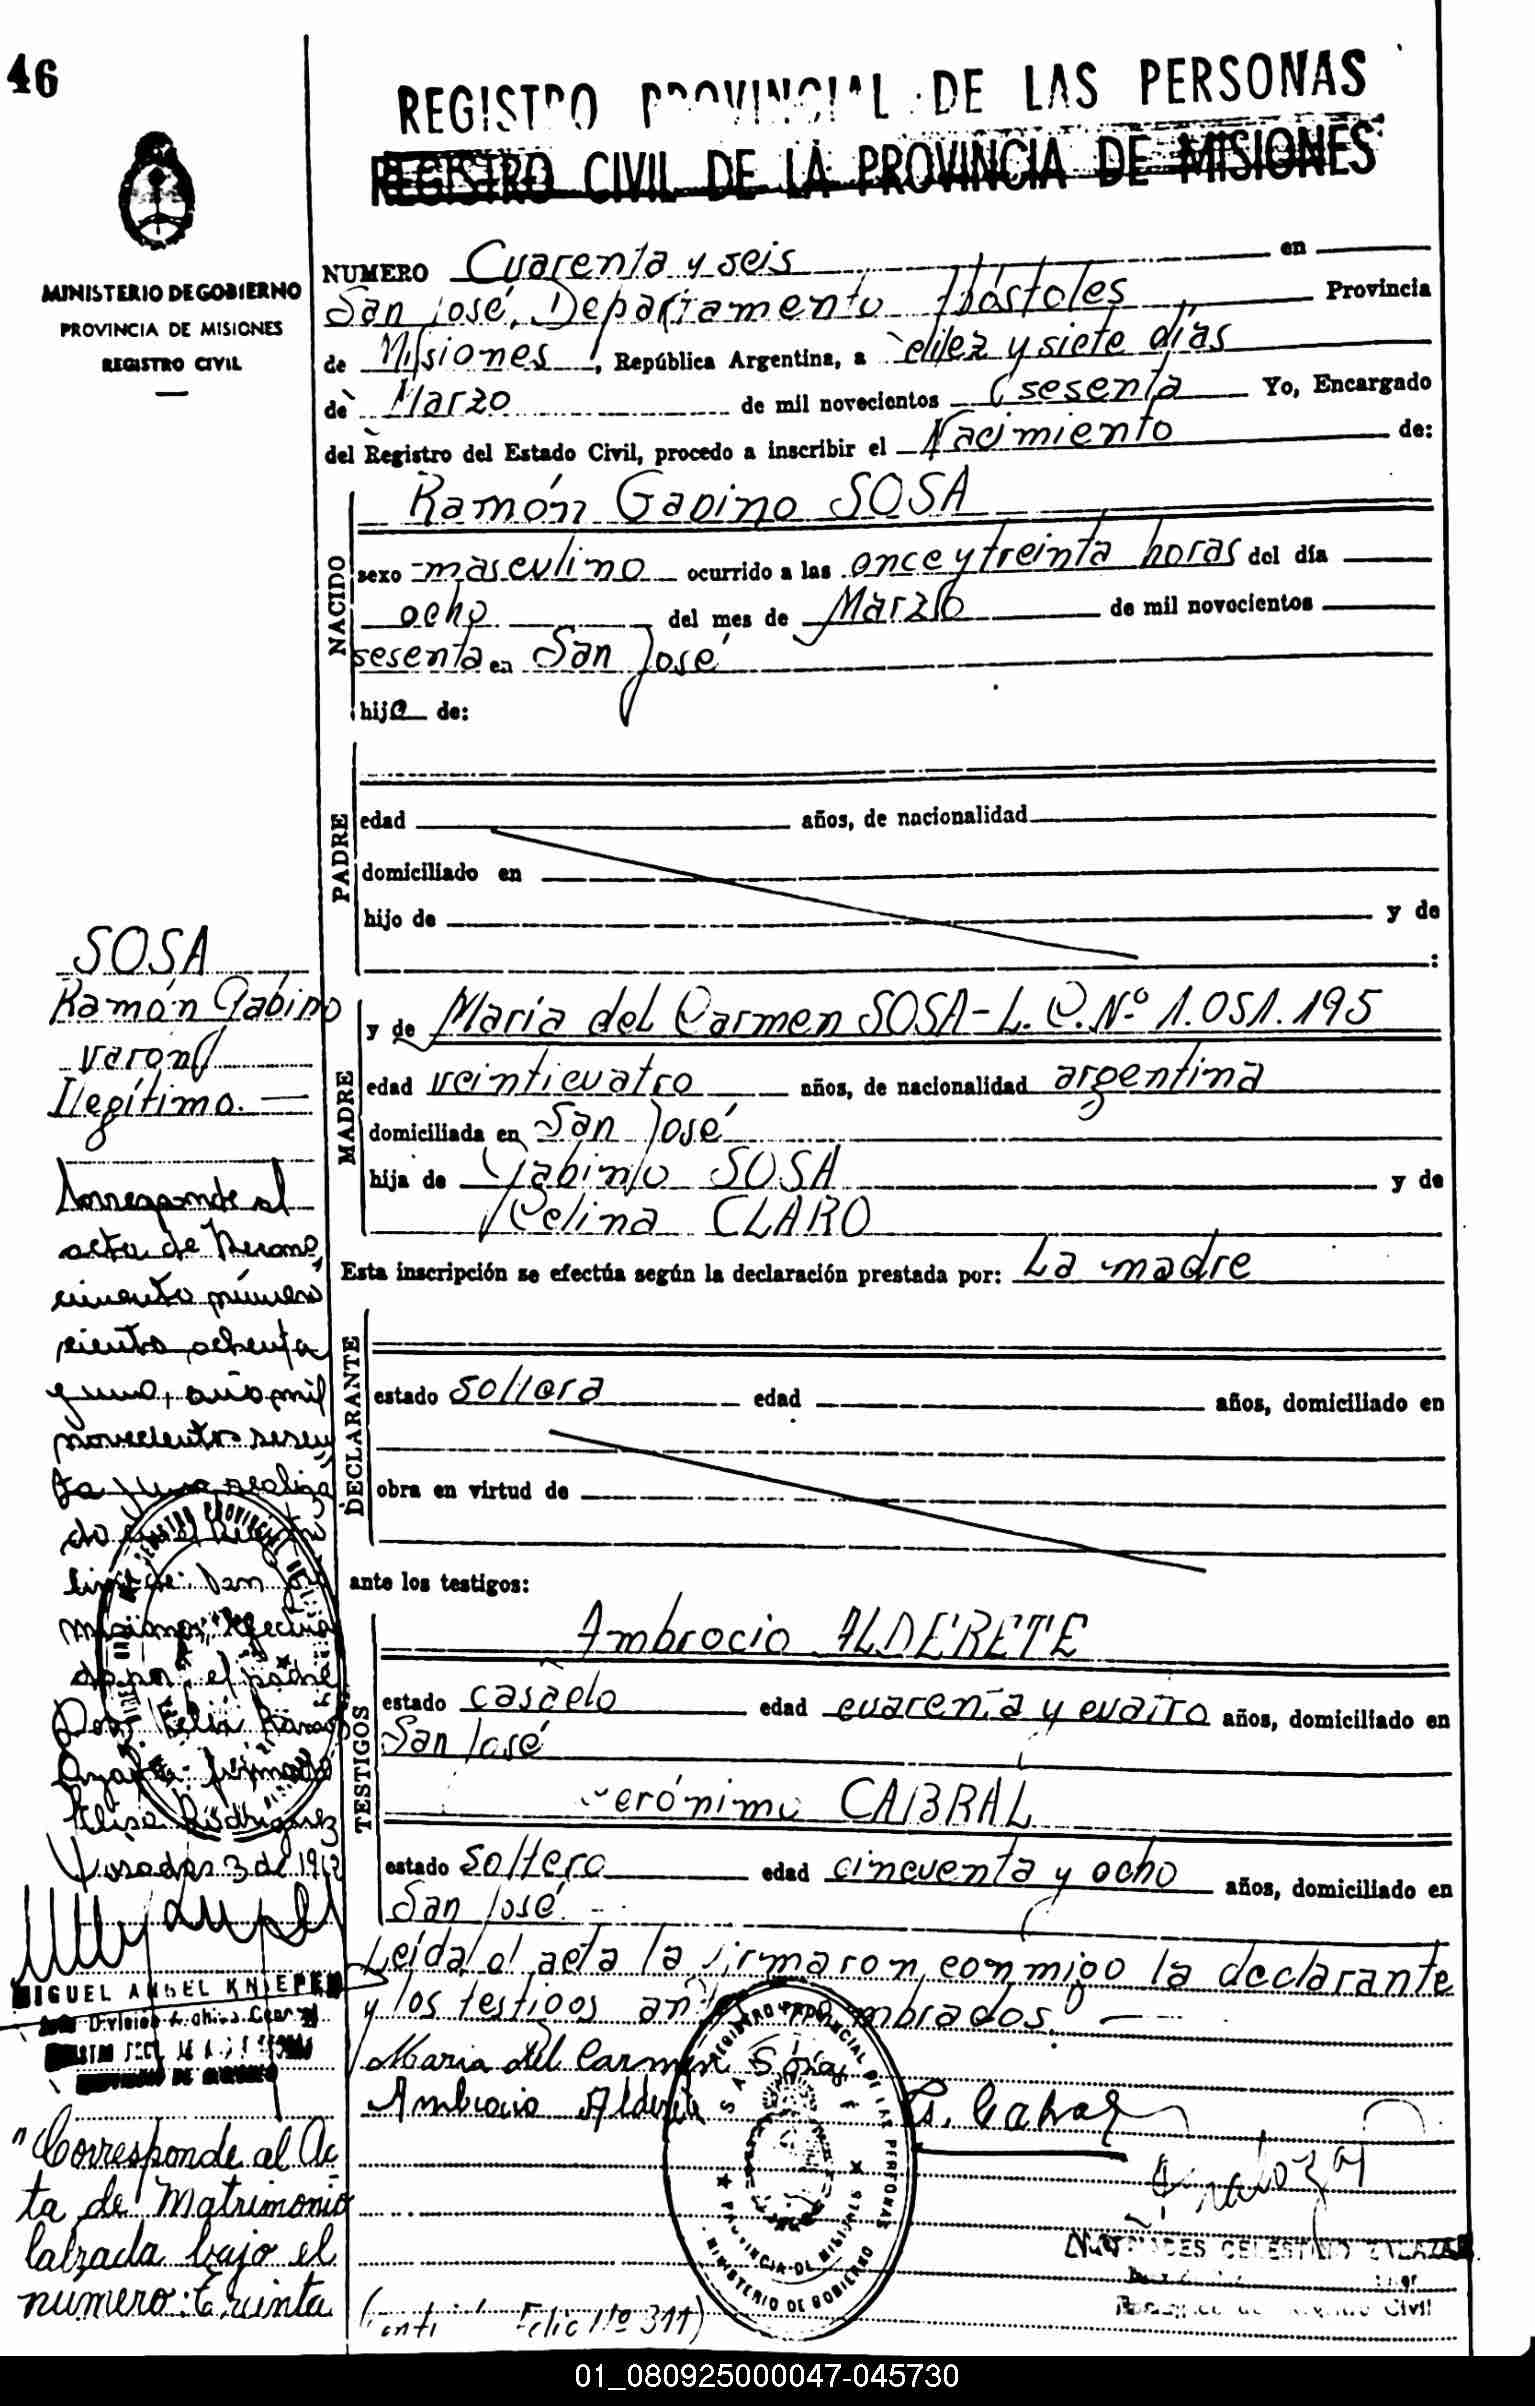 46
REGISTRO PROVINCIAL DE LAS PERSONAS
REGISTRO CIVIL DE LA PROVINCIA DE MISIONES
MINISTERIO DE GOBIERNO
PROVINCIA DE MISIONES
REGISTRO CIVIL
NUMERO Cuarenta y seis en
San José, Departamento Apóstoles Provincia
de Misiones, República Argentina, a diez y siete días
de Marzo de mil novecientos sesenta Yo, Encargado
del Registro del Estado Civil, procedo a inscribir el Nacimiento de:
NACIDO
Ramón Gabino SOSA
sexo masculino ocurrido a las once y treinta horas del día
ocho del mes de Marzo de mil novecientos
sesenta en San José
hijo de:
PADRE
edad años, de nacionalidad
domiciliado en
hijo de y de
:
SOSA
Ramón Gabino
Varón
Ilegítimo.
MADRE
y de María del Carmen SOSA - L.C. Nº 1.051.195
edad veinticuatro años, de nacionalidad argentina
domiciliada en San José
hija de Gabino SOSA y de
Celina CLARO
Esta inscripción se efectúa según la declaración prestada por: La madre
DECLARANTE
estado soltera edad años, domiciliado en
obra en virtud de
ante los testigos:
TESTIGOS
Ambrocio ALDERETE
estado casado edad cuarenta y cuatro años, domiciliado en
San José
Gerónimo CABRAL
estado soltero edad cincuenta y ocho años, domiciliado en
San José
Leída el acta la firmaron conmigo la declarante
y los testigos antes nombrados.
Maria del Carmen Sosa
Ambrocio Alderete G. Cabral
Corresponde al
acta de Recono
cimiento número
ciento ochenta
y uno, año mil
novecientos sesen
ta y uno realiza
do en el
de San José
Misiones
do por el padre
Don Ramón
firmado
Elisa Rodriguez
Posadas 3 de 1962
MIGUEL ANGEL KNIEPER
División Archivo General
PROVINCIA DE MISIONES
"Corresponde al Ac
ta de Matrimonio
labrada bajo el
numero: Treinta
Folio Nº 311)
REGISTRO PROVINCIAL DE LAS PERSONAS
SAN JOSÉ
PROVINCIA DE MISIONES
MINISTERIO DE GOBIERNO
CELESTINO ZALAZAR
Registro Civil
01_080925000047-045730